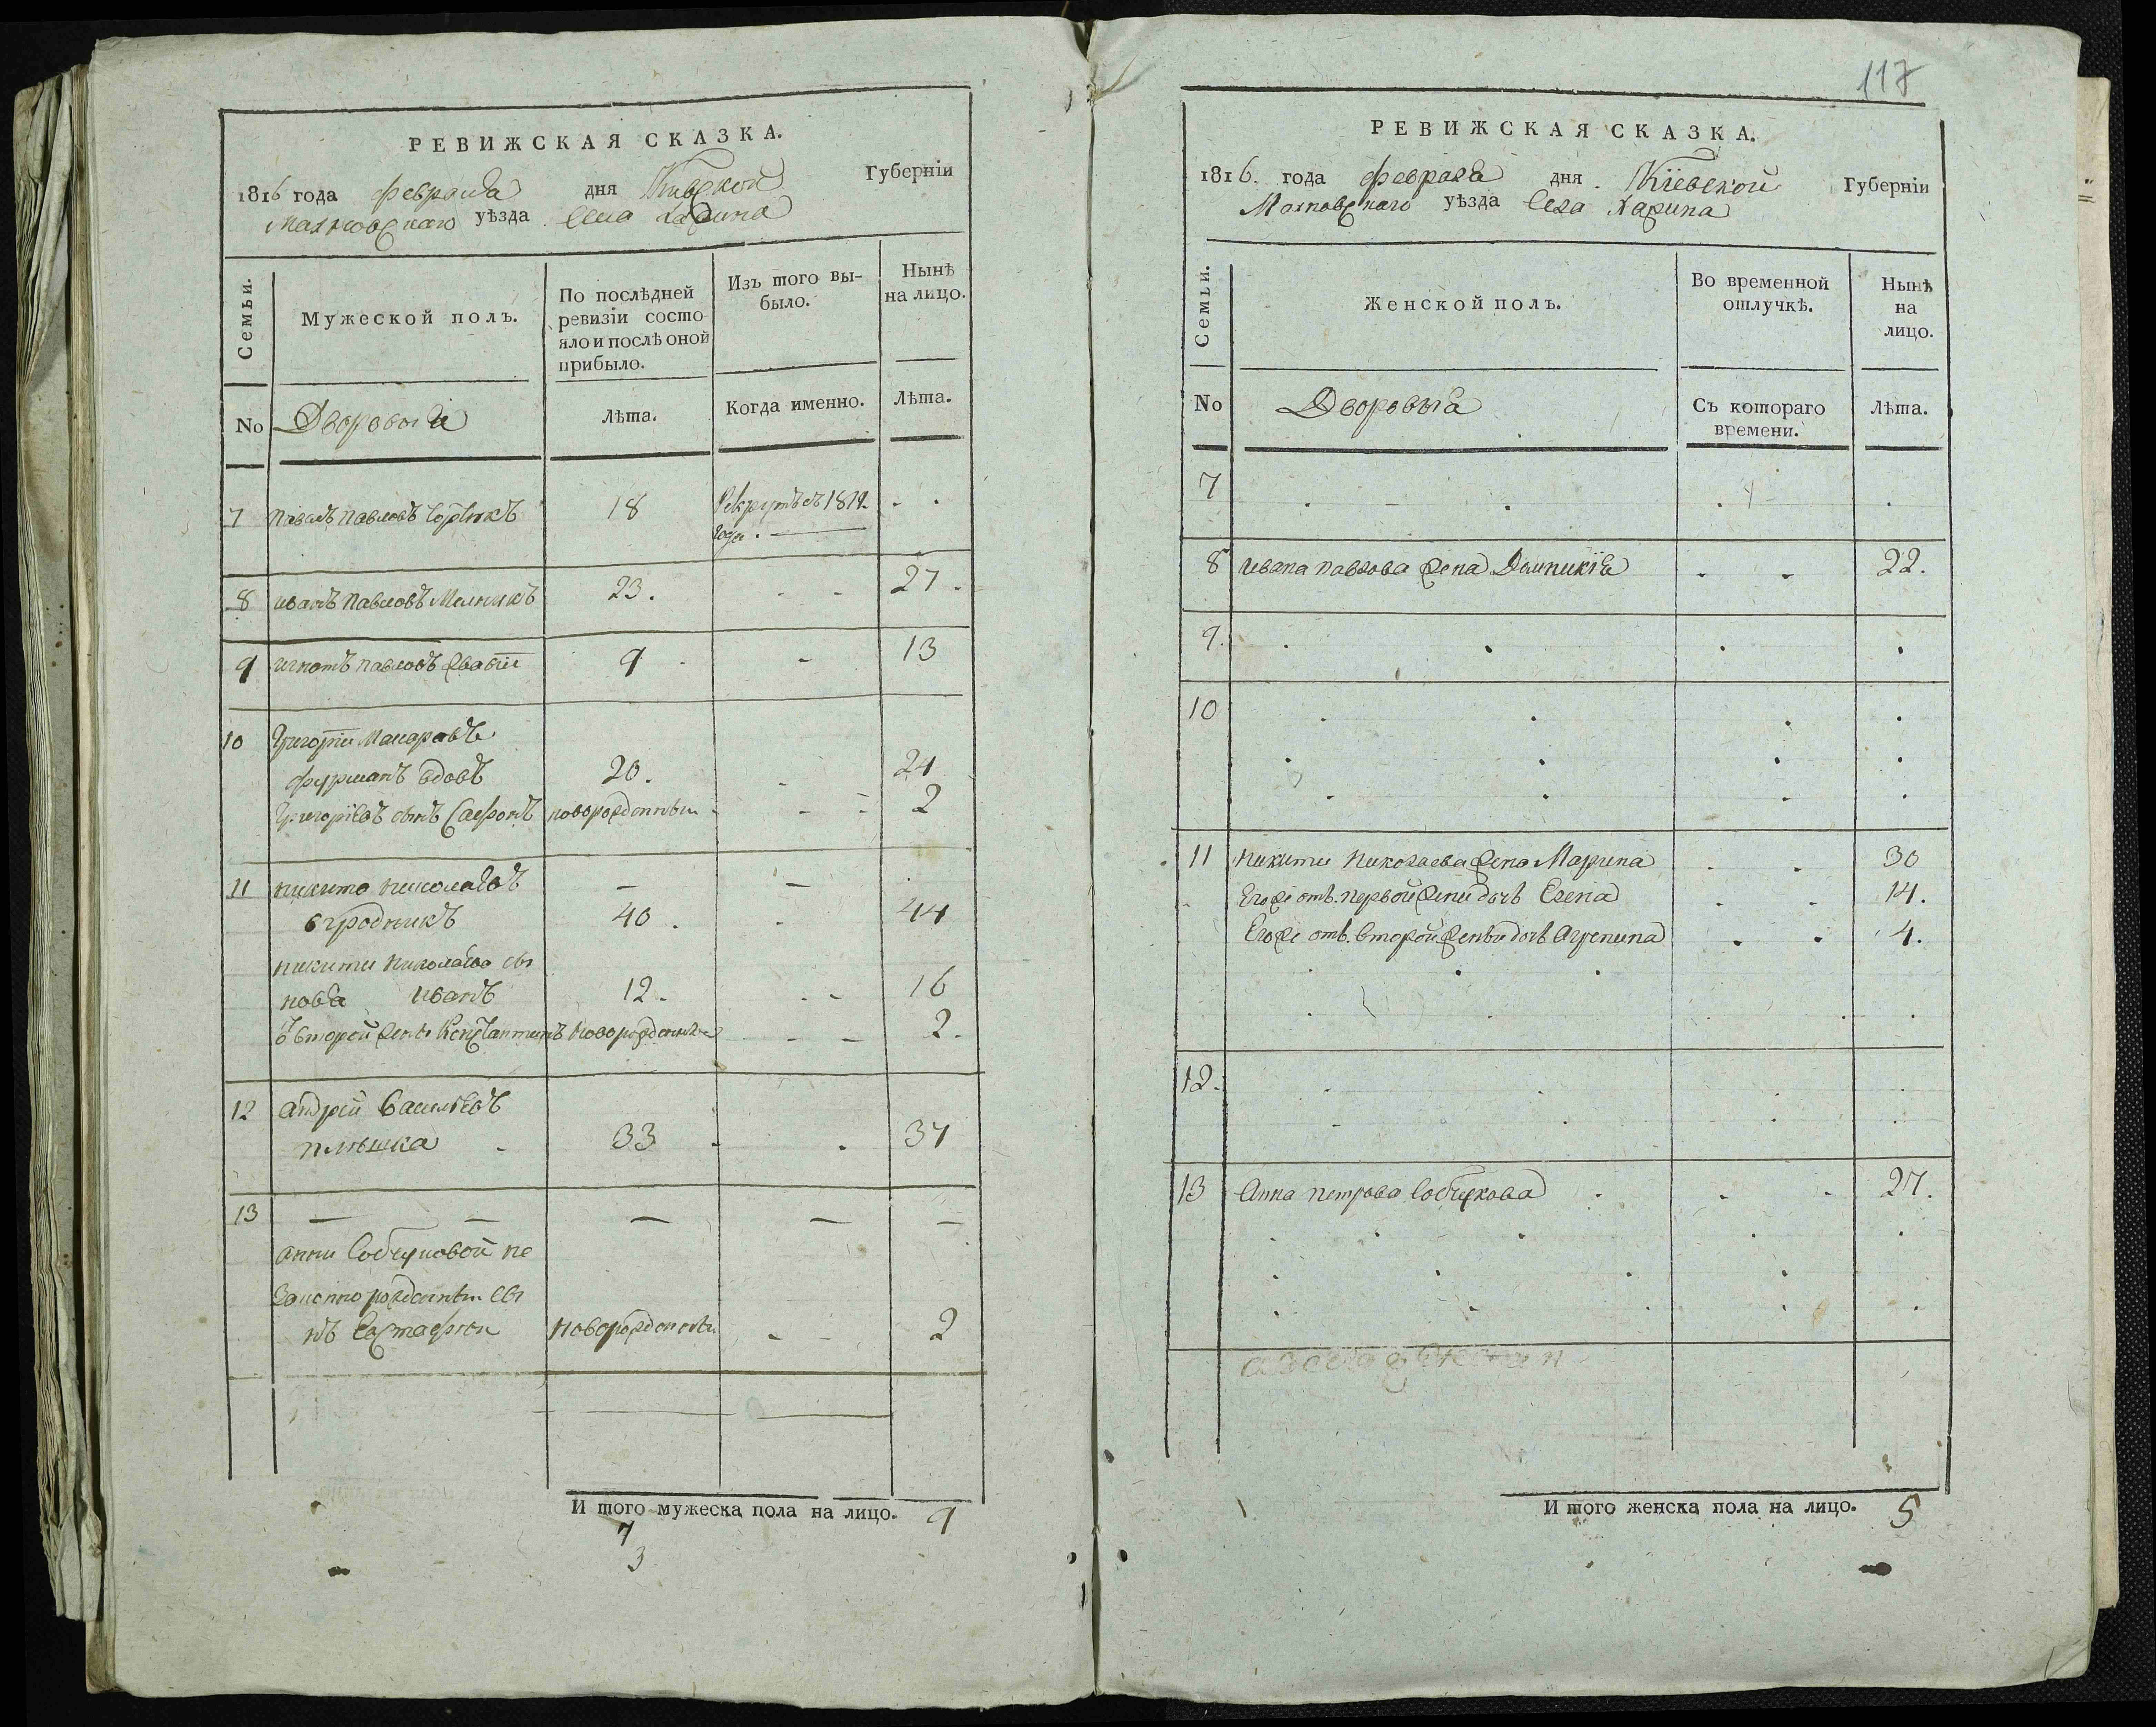 РЕВИЖСКАЯ СКАЗКА.
1816 года февраля дня Киевской Губерніи
Махновскаго уѣзда Села
Семьи.
Мужеской полъ.
По послѣдней ревизіи состо-
яло и послѣ оной
прибыло.
Изъ того вы-
было.
Нынѣ
на лицо.
No
Дворовыя
Лѣта.
Когда именно.
Лѣта.
7 Павелъ Павловъ 18 Рекрутъ въ 1812
года. - -
8 Иванъ Павловъ Мелникъ 23. - - 27.
9 Игнатъ Павловъ 9 - 13
10 Григорій Макаровъ
фурманъ вдовъ 20. - 24
Григоріевъ сынъ новорожденный - - 2
11 Никита Николаевъ - -
огродникъ 40. - 44
Никиты Николаева сы
новья Иванъ 12. - - 16
Второй жены Константинъ новорожденный - - 2.
12 Андрей Васильевъ
33 - 37
13 - - - - -
Анны не
законнорожденный сы
нъ Евстафій новорожденный - - 2
И того мужеска пола на лицо. 9
7
3
117
РЕВИЖСКАЯ СКАЗКА.
1816. года февраля дня Кіевской Губерніи
Махновскаго уѣзда Села
Семьи.
Женской полъ.
Во временной
отлучкѣ.
Нынѣ
на
лицо.
No
Дворовыя
Съ котораго
времени.
Лѣта.
7
8 Ивана Павлова жена Доминикія - - 22.
9.
10
11 Никиты Николаева жена Марина - - 30
Его же отъ первой жены дочь Елена - - 14.
Его же отъ второй жены дочь Агрепина - - 4.
12.
13 Анна Петрова - - 27.
И того женска пола на лицо. 5